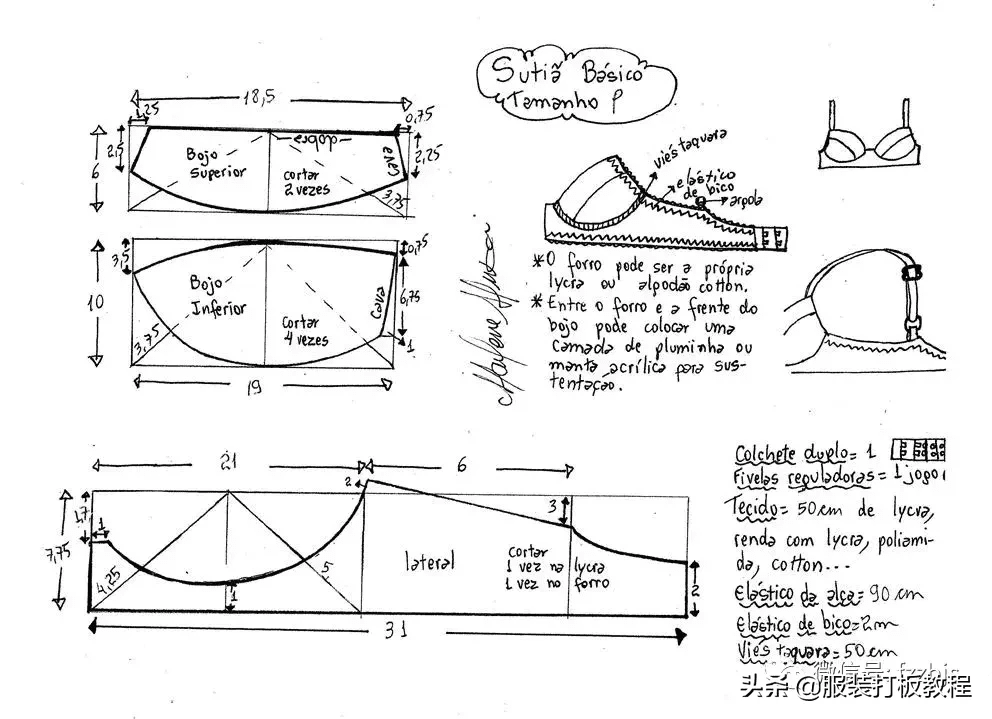 Sutiã Básico
Tamanho P
18,5
1,25
0,75
dobra
6
2,5
Bojo
Superior
cortar
2 vezes
cava
2,25
3,75
10
3,5
Bojo
Inferior
Cortar
4 vezes
cava
0,75
6,75
1
3,75
19
viés taquara
elástico
de bico
argola
*O forro pode ser a própria
lycra ou algodão cotton.
*Entre o forro e a frente do
bojo pode colocar uma
camada de pluminha ou
manta acrílica para sus-
tentação.
21
6
2
3
7,75
1,7
1
4,25
1
5
lateral
cortar
1 vez na lycra
1 vez no forro
2
31
Colchete duplo= 1
Fivelas reguladoras= 1 jogo
Tecido= 50cm de lycra,
renda com lycra, poliami-
da, cotton...
Elástico da alça= 90 cm
Elástico de bico=2m
Viés taquara=50cm
微信号:
头条@服装打板教程